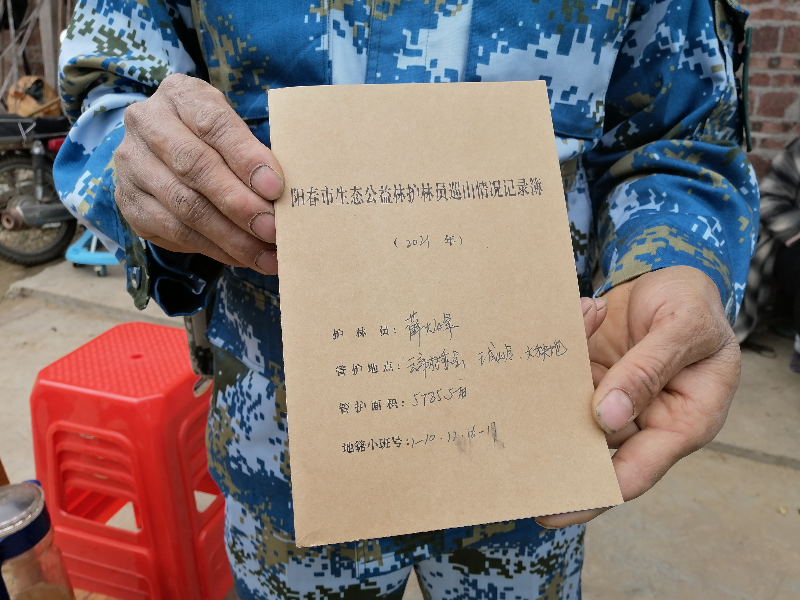 阳春市生态公益林护林员巡山情况记录簿
(2021 年)
护林员:薛
管护地点:
管护面积:5735.5亩
地籍小班号:1-10、12、16-19